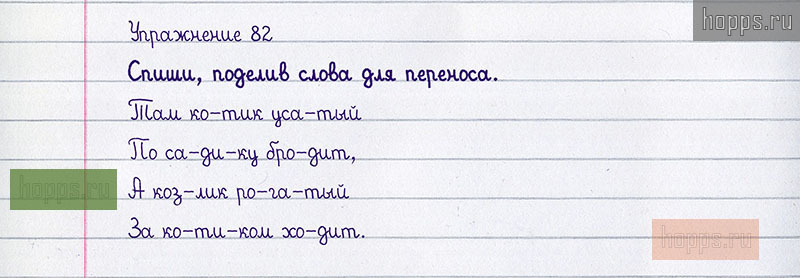 hopps.ru
Упражнение 82
Спиши, поделив слова для переноса.
Там ко-тик уса-тый
По са-ди-ку бро-дит,
hopps.ru
А коз-лик ро-га-тый
За ко-ти-ком хо-дит.
hopps.ru